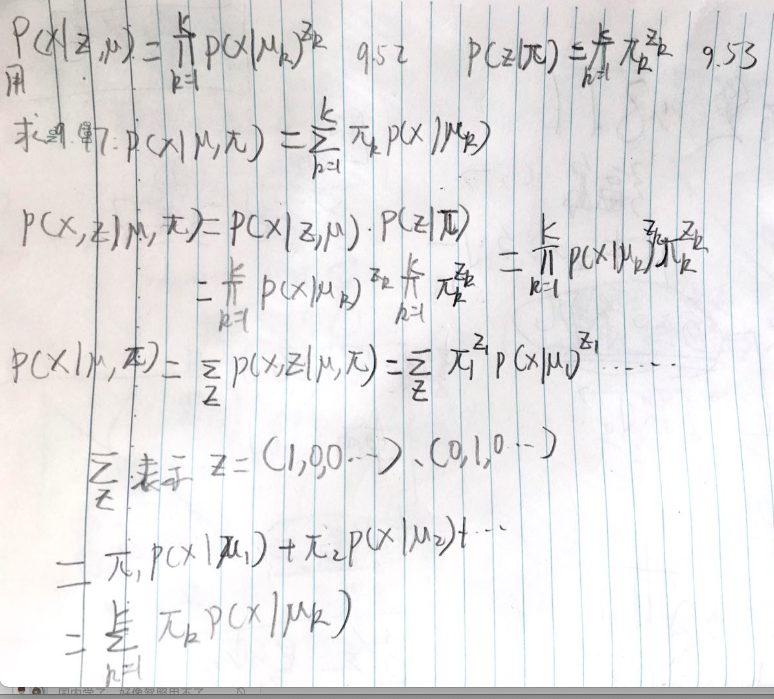 P(x|z,μ) = ∏_{k=1}^{K} p(x|μ_k)^{z_k} 9.52 p(z|π) = ∏_{k=1}^{K} π_k^{z_k} 9.53
用
求 7: p(x|μ,π) = ∑_{k=1}^{K} π_k p(x|μ_k)
p(x,z|μ,π) = p(x|z,μ)·p(z|π)
= ∏_{k=1}^{K} p(x|μ_k)^{z_k} ∏_{k=1}^{K} π_k^{z_k} = ∏_{k=1}^{K} p(x|μ_k)^{z_k} π_k^{z_k}
p(x|μ,π) = ∑_z p(x,z|μ,π) = ∑_z π_1^{z_1} p(x|μ_1)^{z_1} ......
∑_z 表示 z = (1,0,0...)、(0,1,0...)
= π_1 p(x|μ_1) + π_2 p(x|μ_2) + ...
= ∑_{k=1}^{K} π_k p(x|μ_k)